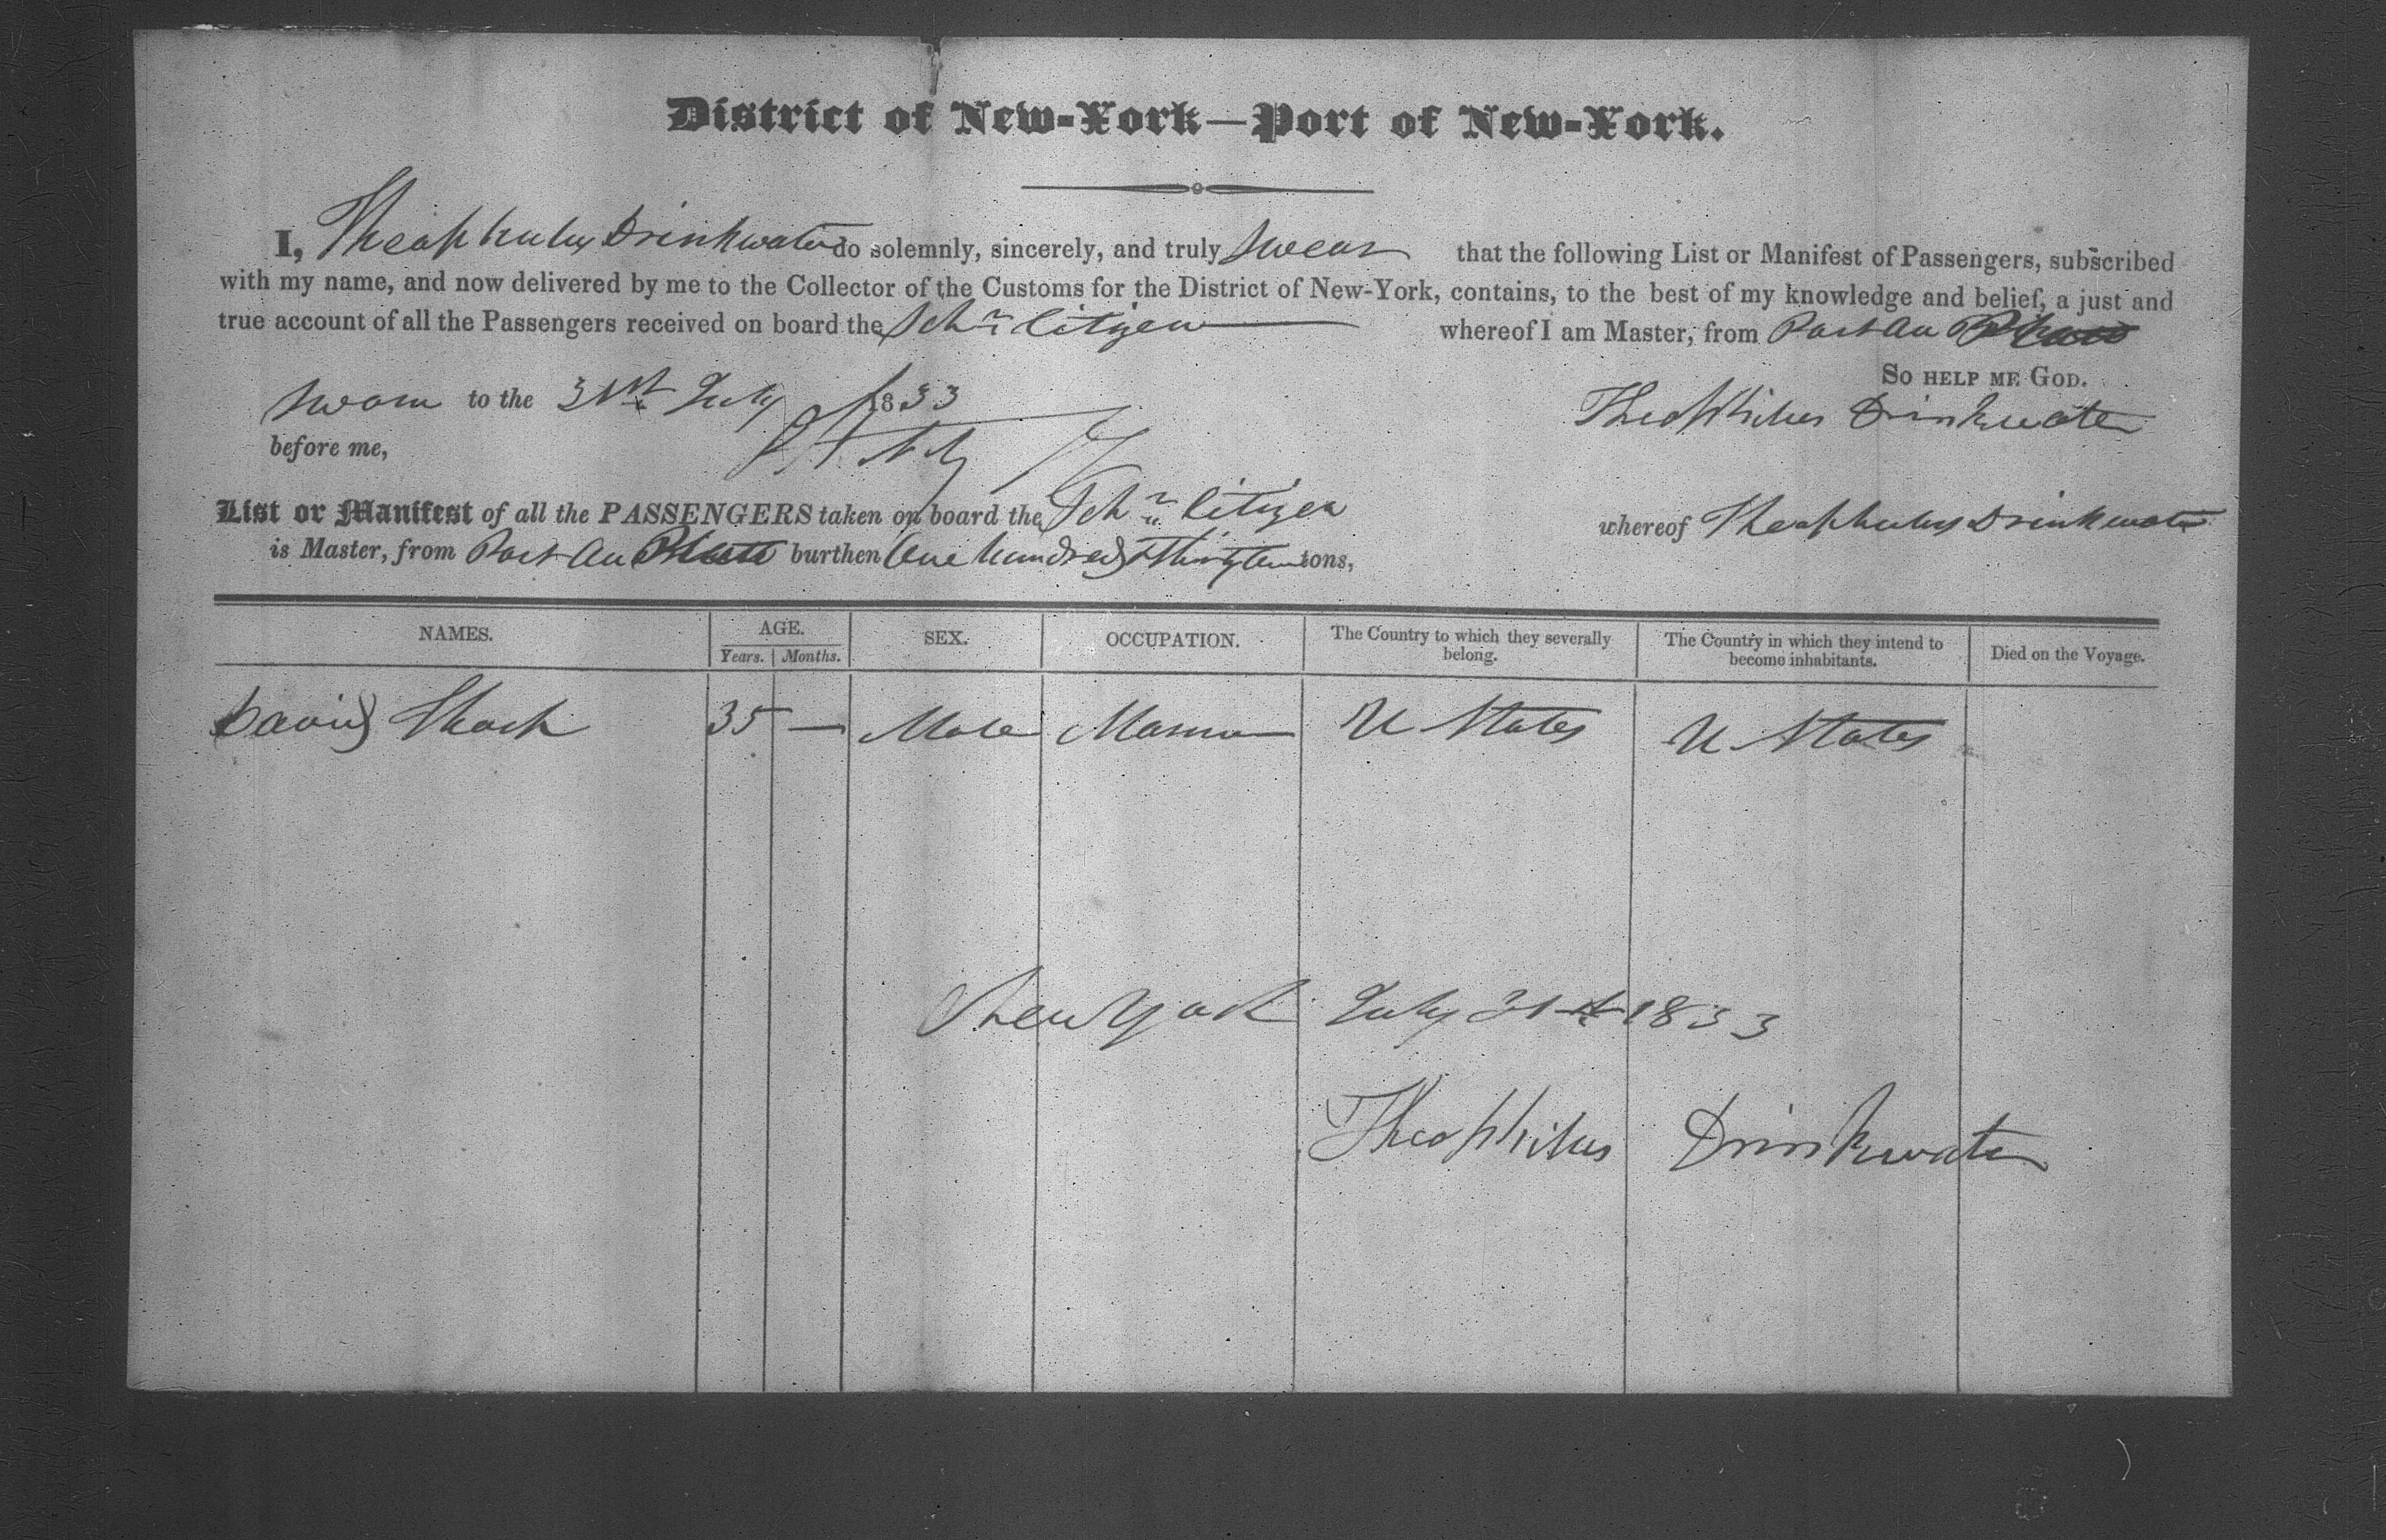 District of New-York—Port of New-York.
I, Theophulus Drinkwater do solemnly, sincerely, and truly Swear that the following List or Manifest of Passengers, subscribed
with my name, and now delivered by me to the Collector of the Customs for the District of New-York, contains, to the best of my knowledge and belief, a just and
true account of all the Passengers received on board the Schr Citizen whereof I am Master, from Port Au
So HELP ME GOD.
Sworn to the 31st July 1833
Theophilus Drinkwater
before me,
List or Manifest of all the PASSENGERS taken on board the Schr Citizen whereof Theophulus Drinkwater
is Master, from Port Au burthen One hundred tons,
NAMES. AGE. SEX. OCCUPATION. The Country to which they severally belong. The Country in which they intend to become inhabitants. Died on the Voyage.
Years. Months.
David 35 — Male U States U States
New York July 31st 1833
Theophilus Drinkwater